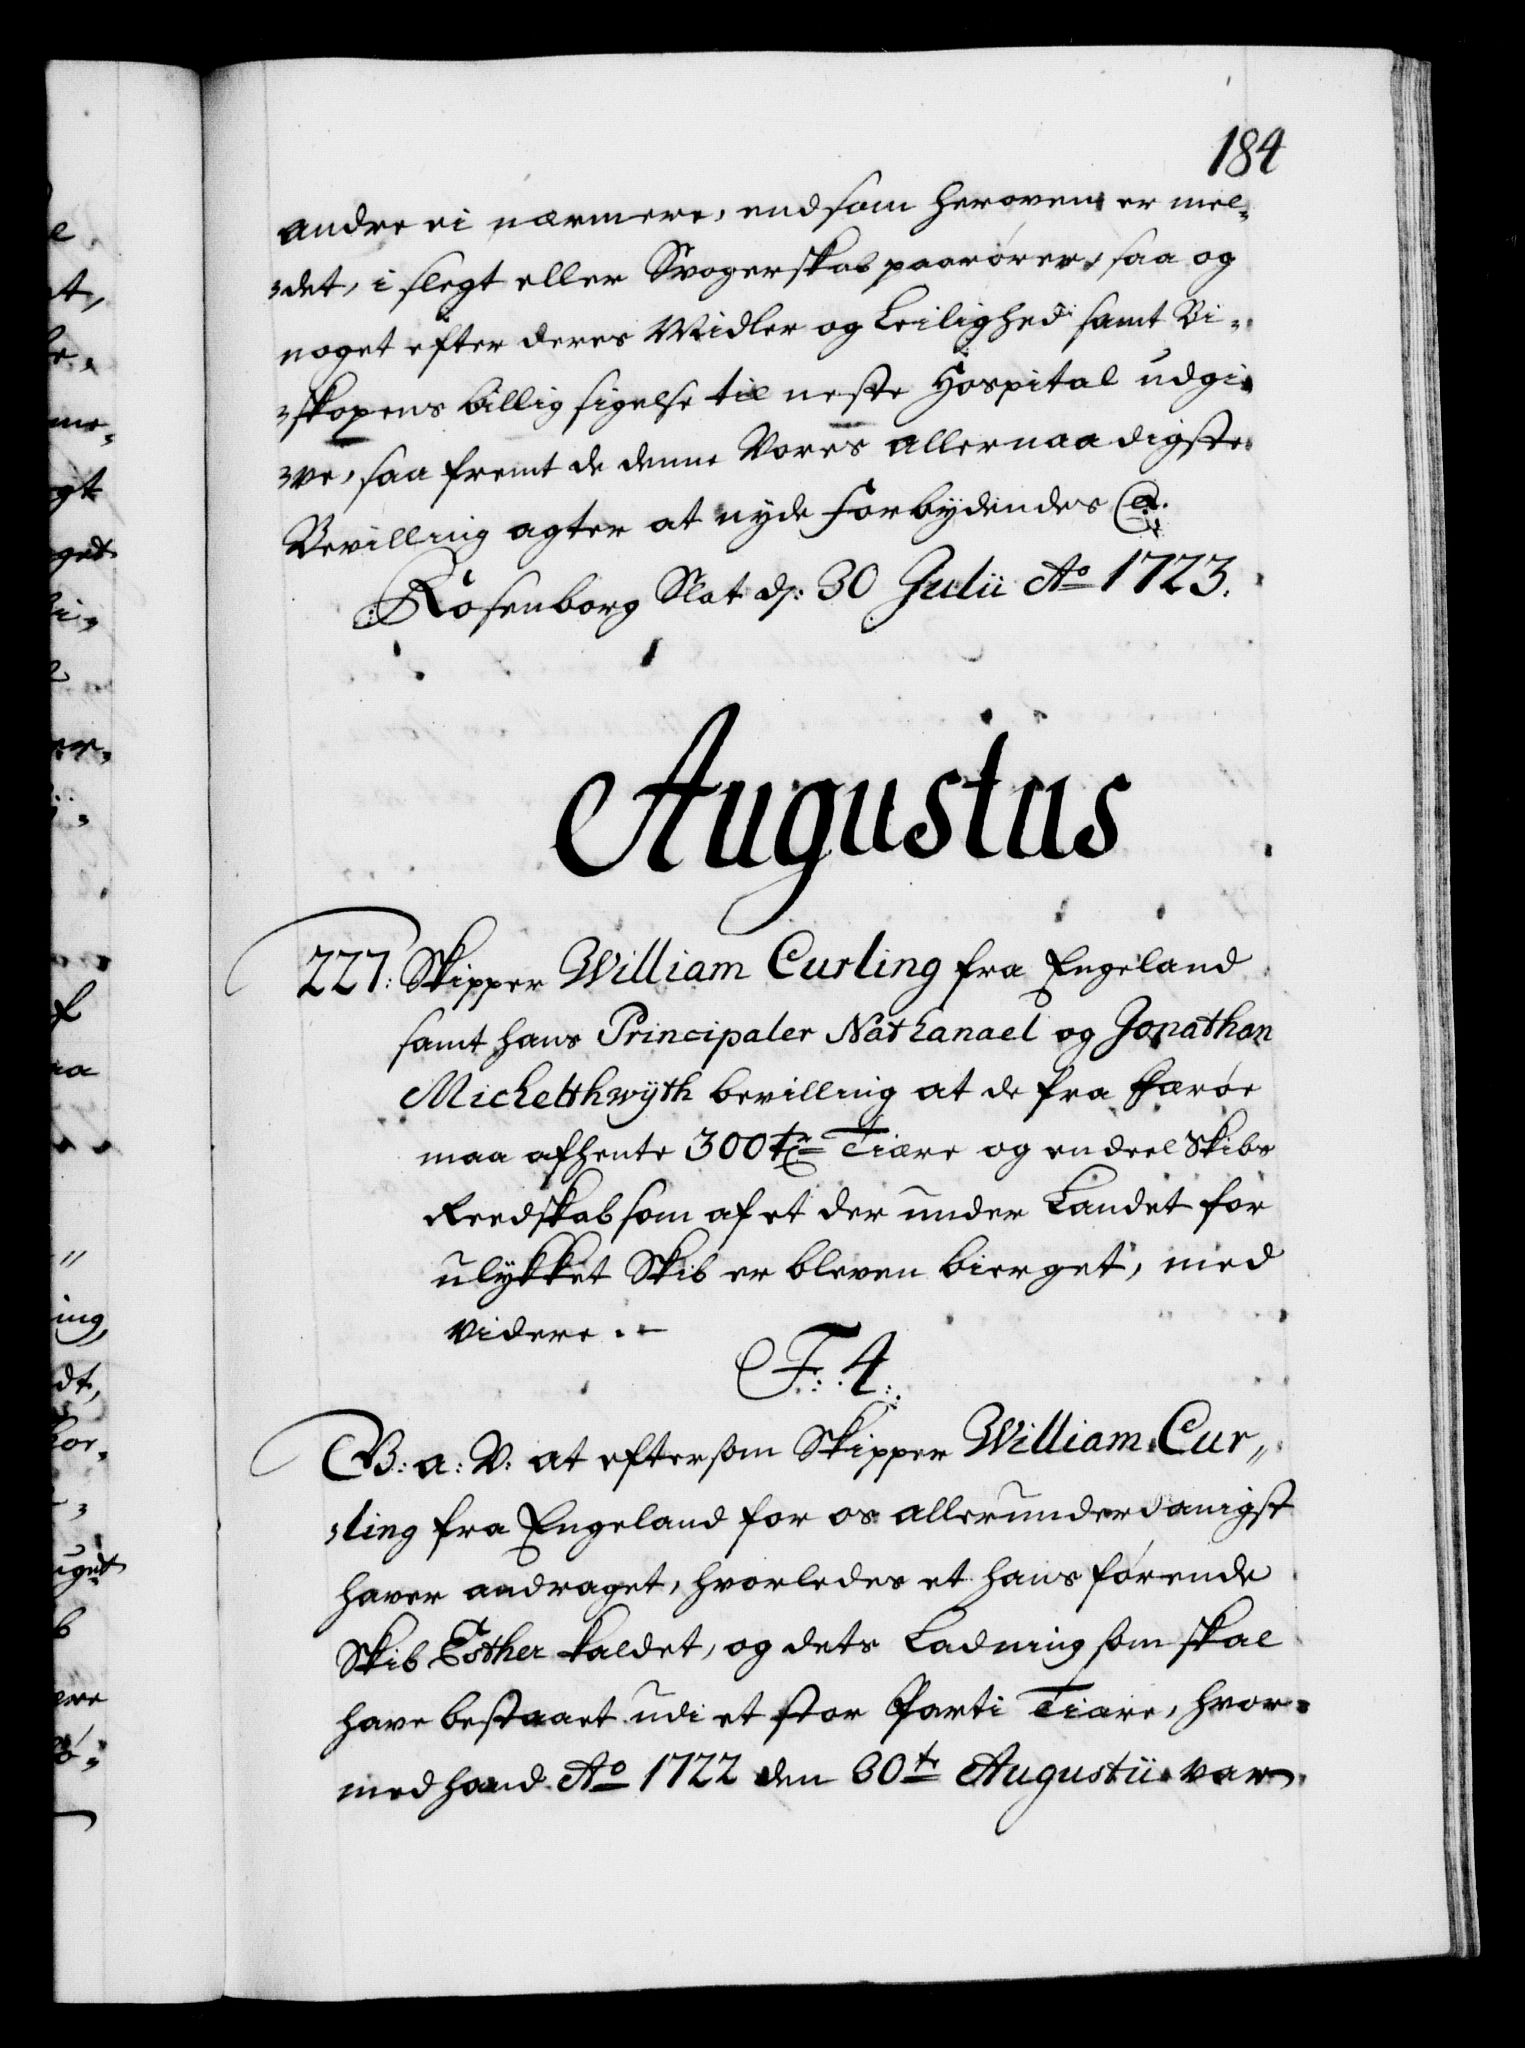 184
andre ei nærmere, end som heroven er mel-
det, i slegt eller Svogerskab paarører, saa og
noget efter deres Midler og Leilighed samt Bi-
skopens billig sigelse til neste Hospital udgi-
ve, saa fremt de denne Vores allernaadigste
Bevilling agter at nyde Forbydendes &.
Rosenborg Slot d: 30 Julii Ao 1723.
Augustus
227: Skipper William Curling fra Engeland
samt hans Principaler Nathanael og Jonathan
Michelthwÿth bevilling at de fra Færøe
maa afhente 300 tr Tiære og en deel Skibs
Reedskab som af et der under Landet for
ulykket Skib er bleven bierget, med
videre. -
F: 4:
B: a: V: at eftersom Skipper William Cur-
ling fra Engeland for os allerunderdanigst
haver andraget, hvorledes et hans førende
Skib Esther kaldet, og dets Ladning som skal
have bestaaet udi et stor Parti Tiære, hvor-
med hand Ao 1722 den 30te Augustii var